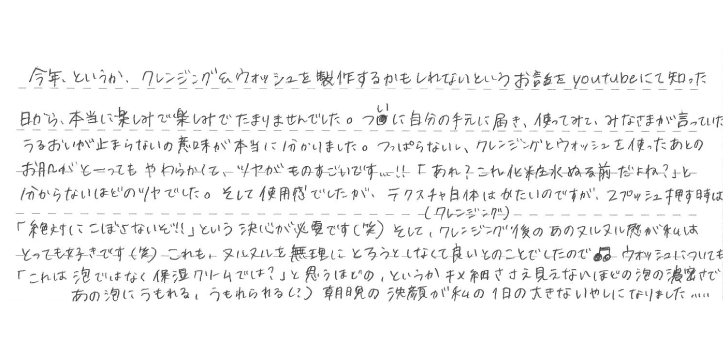 今年、というか、クレンジング&ウォッシュを製作するかもしれないというお話をyoutubeにて知った
日から、本当に楽しみで楽しみでたまりませんでした。ついに自分の手元に届き、使ってみて、みなさまが言っていた
うるおいが止まらないの意味が本当に分かりました。つっぱらないし、クレンジングとウォッシュを使ったあとの
お肌がとーってもやわらかくて、ツヤがものすごいです…!!「あれ?これ化粧水ぬる前だよね?」と
分からないほどのツヤでした。そして使用感でしたが、テクスチャ自体はかたいのですが、2プッシュ押す時は
(クレンジング)
「絶対にこぼさないぞ!!」という決心が必要です(笑)そして、クレンジング後のあのヌルヌル感が私は
とっても好きです(笑)これも、ヌルヌルを無理にとろうとしなくて良いとのことでしたので ウォッシュについても
「これは泡ではなく保湿クリームでは?」と思うほどの、というかキメ細ささえ見えないほどの泡の濃密さで
あの泡にうもれる、うもれられる(?)朝晩の洗顔が私の1日の大きないやしになりました……